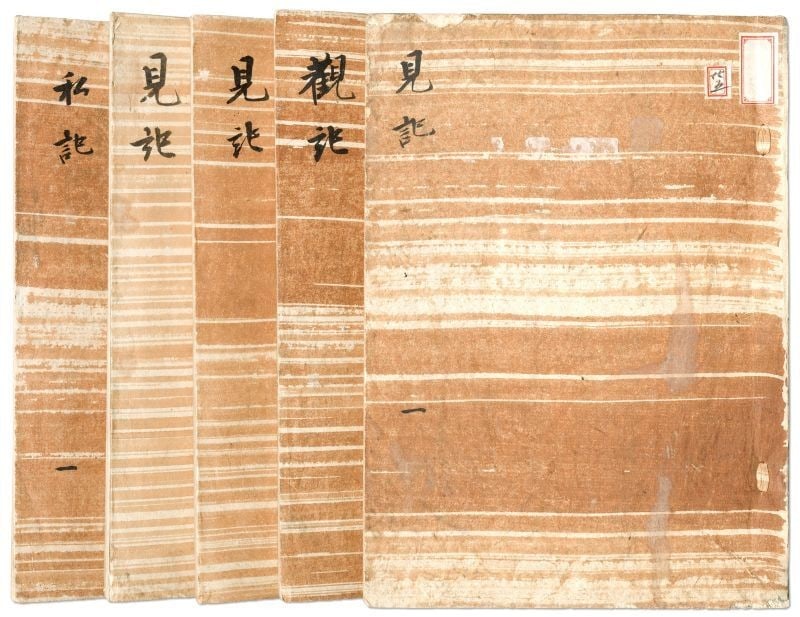 見記
一
觀記
見記
見記
私記
一